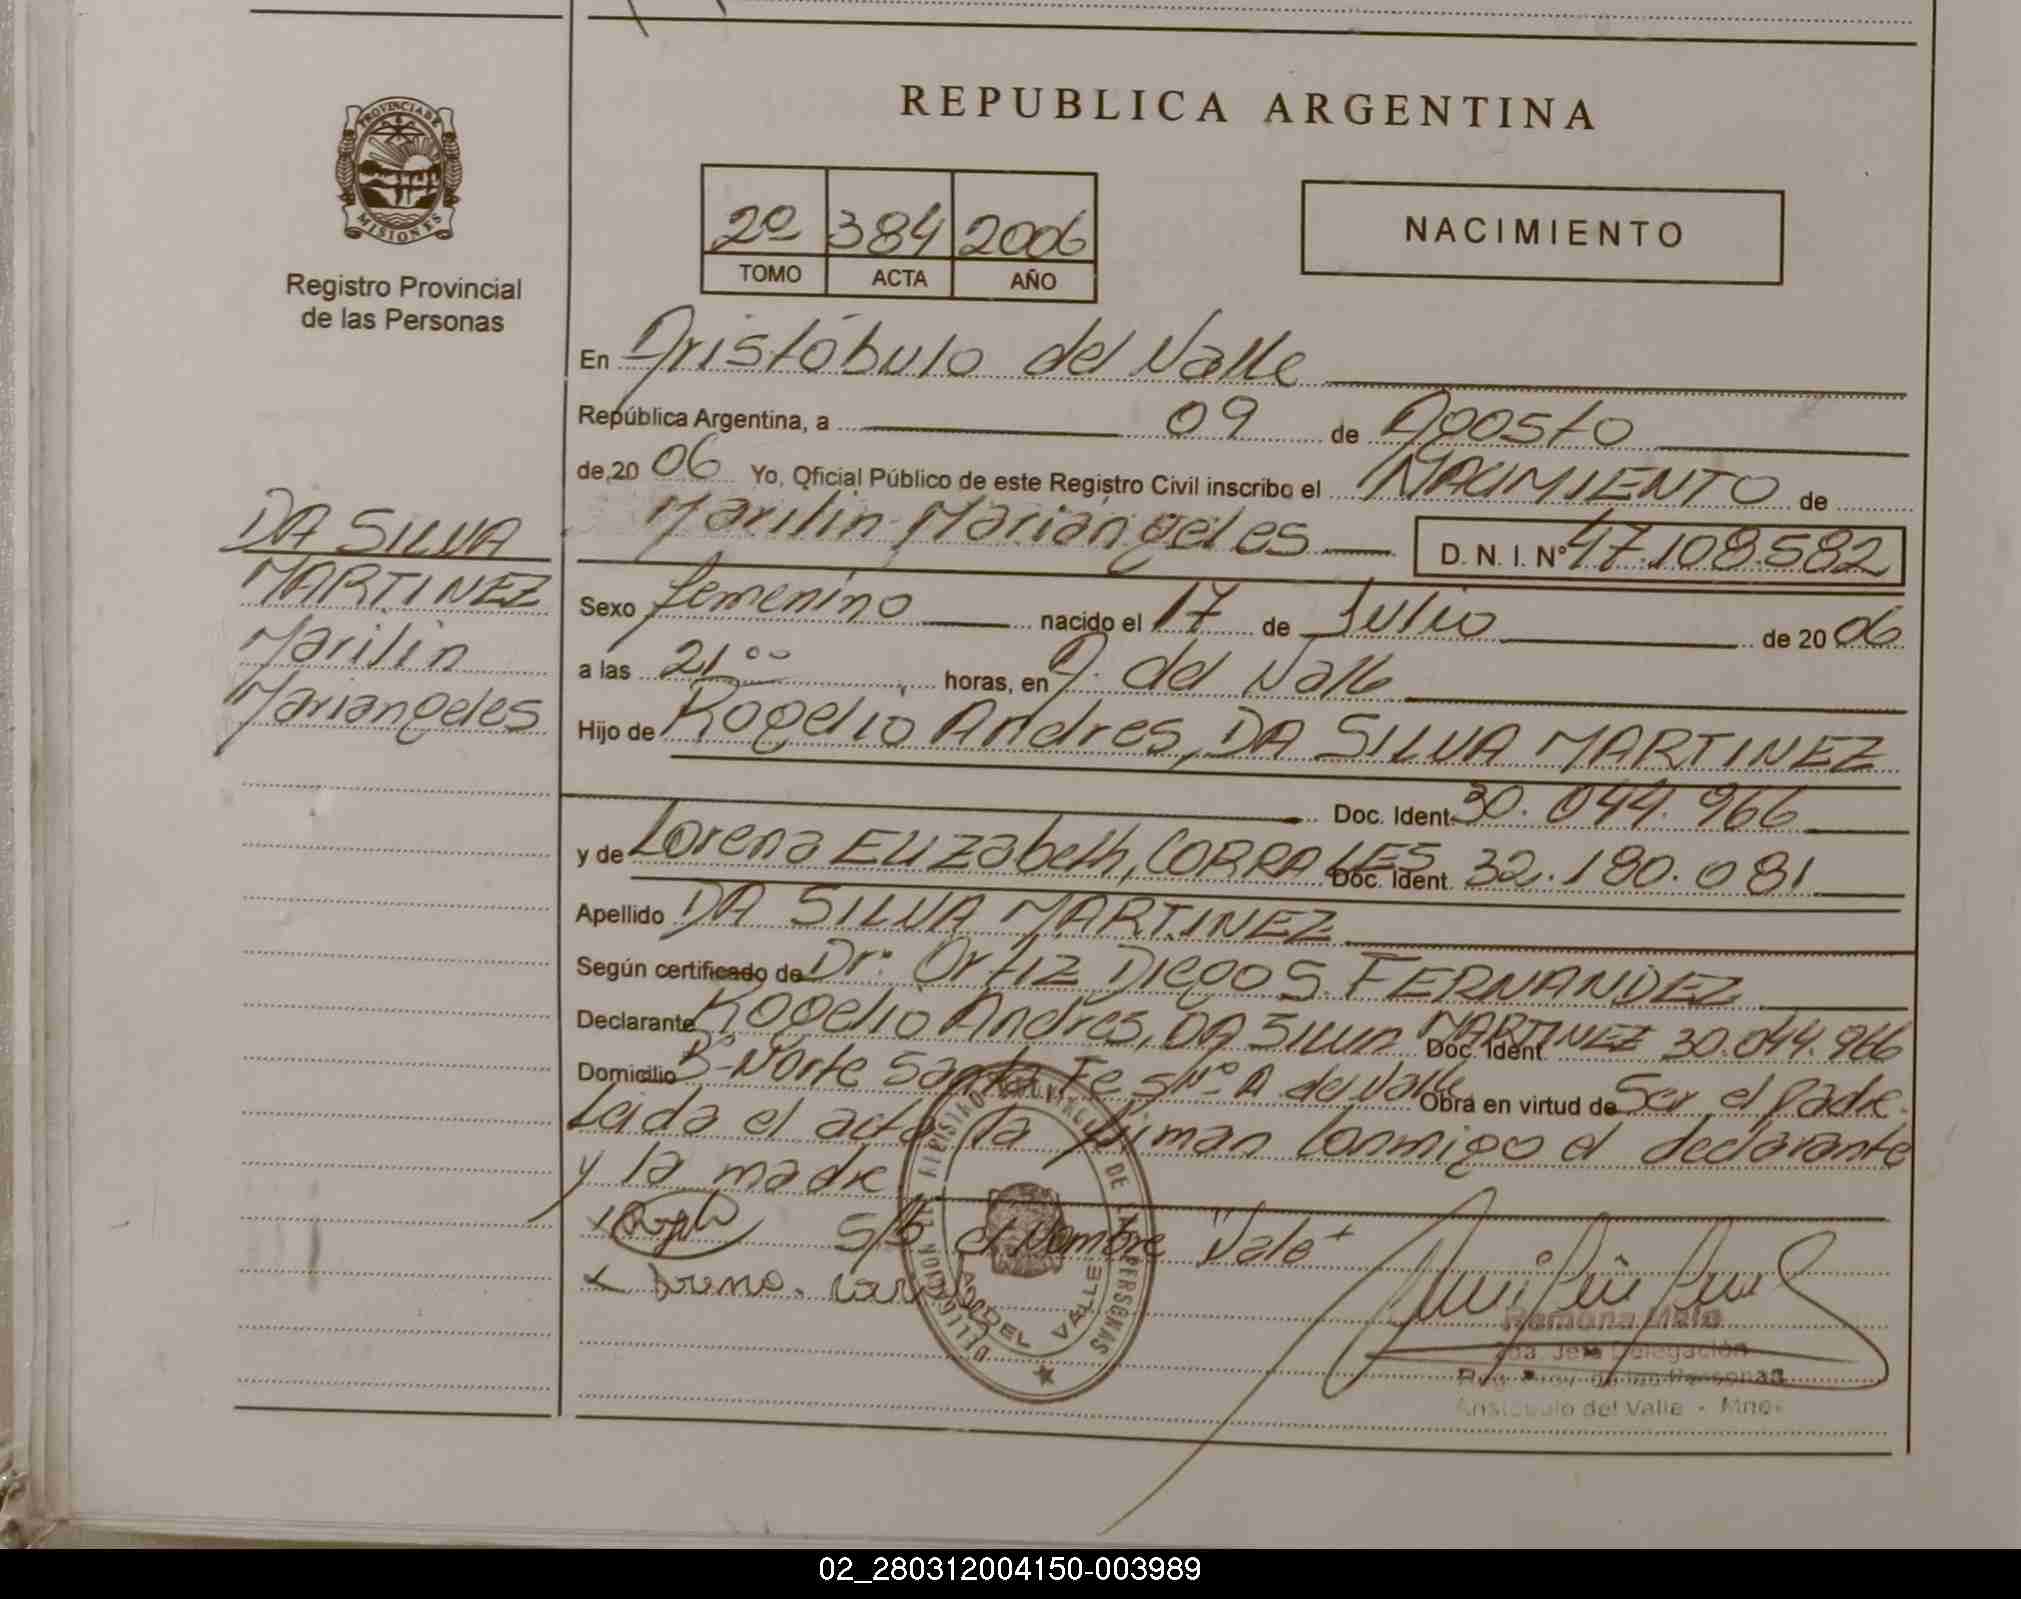 PROVINCIA DE
MISIONES
Registro Provincial
de las Personas
DA SILVA
MARTINEZ
Marilin
Mariangeles
REPUBLICA ARGENTINA
2º 384 2006
TOMO ACTA AÑO
NACIMIENTO
En Aristóbulo del Valle
República Argentina, a 09 de Agosto
de 20 06 Yo, Oficial Público de este Registro Civil inscribo el NACIMIENTO de
Marilin Mariangeles D. N. I. Nº 47.108.582
Sexo femenino nacido el 17 de Julio de 20 06
a las 21 00 horas, en A. del Valle
Hijo de Rogelio Andres, DA SILVA MARTINEZ
Doc. Ident. 30.044.966
y de Lorena Elizabeth, CORRALES Doc. Ident. 32.180.081
Apellido DA SILVA MARTINEZ
Según certificado de Dr: Ortiz Diego S. FERNANDEZ
Declarante Rogelio Andres, DA SILVA MARTINEZ Doc. Ident 30.044.966
Domicilio Bº Norte Santa Fe s/Nº A del Valle Obra en virtud de Ser el padre.
Leida el acta la firman conmigo el declarante
y la madre
S/b el Nombre "Vale"
DELEGACION DEL REGISTRO PROVINCIAL DE LAS PERSONAS
A. DEL VALLE
Ramona Melo
Jefa Delegación
Reg. Prov. de las Personas
Aristóbulo del Valle - Mnes
02_280312004150-003989